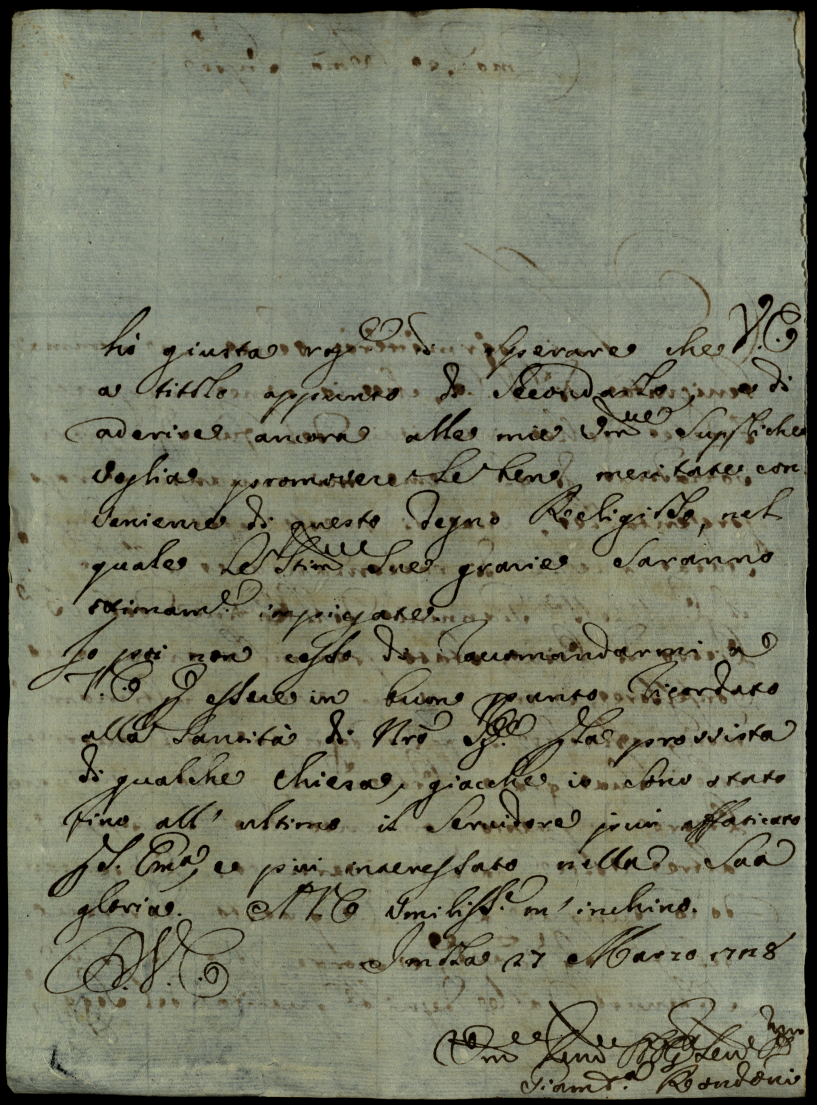 hò giusta rag.e di sperare che V.E.
a titolo appunto di secondarlo, e di
aderire ancora alle mie Um.me suppliche
voglia promovere le ben meritate con
venienze di questo degno Religioso, nel
quale le Stim.me Sue grazie saranno
ottimam.e impiegate.
Io poi non cesso di raccomandarmi a
V.E. p essere in buon punto ricordato
alla Santità di Nrõ Sig.re p la provista
di qualche Chiesa, giacche io sono stato
fino all' ultimo il servidore più affaticato
di S. Em.a, e più interessato nella Sua
gloria. A V.E. umiliss.e m' inchino.
D.V.E.
Imola 27 Marzo 1728
Um.mo Dev.mo Obblig.mo Serv.re
Giamb.a Bondoni